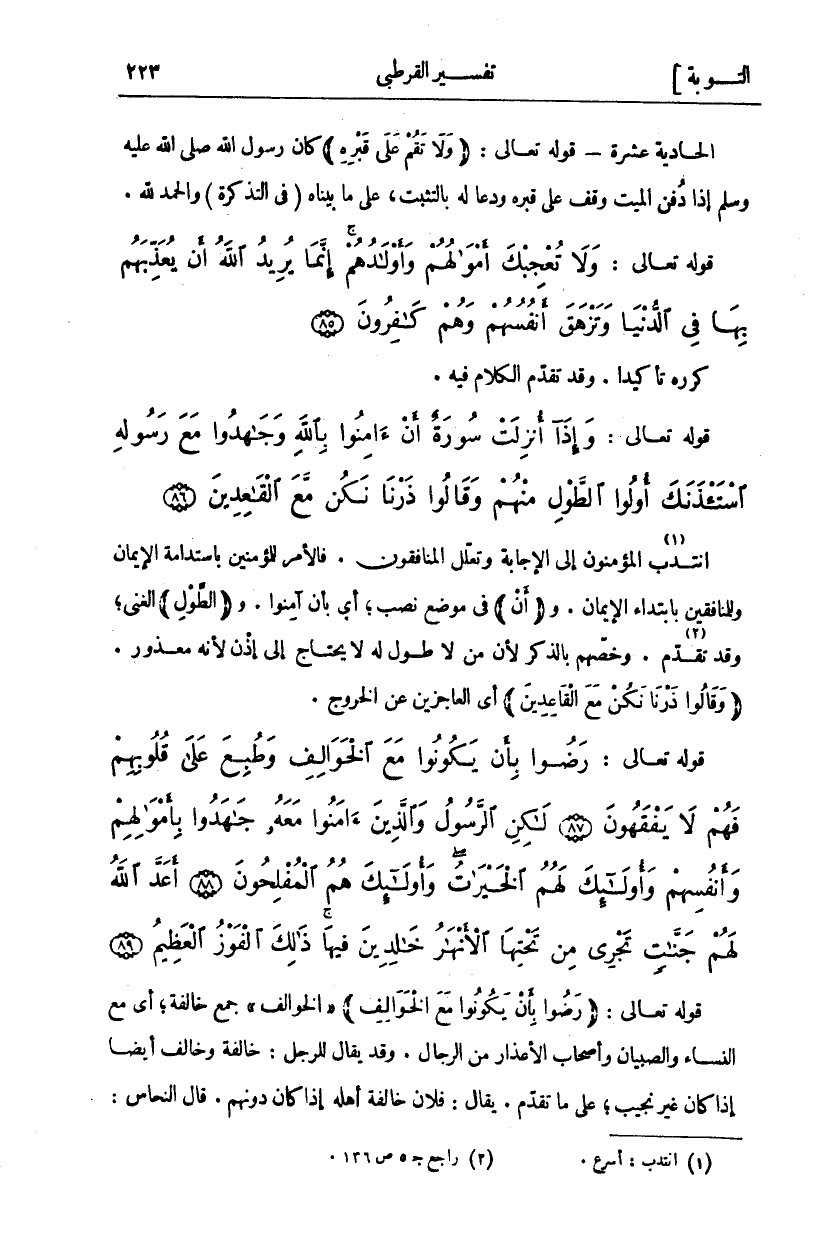 التــوبة ] تفســير القرطبى ٢٢٣
الحادية عشرة – قوله تعالى : ﴿ وَلَا تَقُمْ عَلَى قَبْرِهِ ﴾ كان رسول الله صلى الله عليه
وسلم إذا دُفن الميت وقف على قبره ودعا له بالتثبت، على ما بيناه ( فى التذكرة ) والحمد لله .
قوله تعـالى : وَلَا تُعْجِبْكَ أَمْوَٰلُهُمْ وَأَوْلَـٰدُهُمْ ۚ إِنَّمَا يُرِيدُ ٱللَّهُ أَن يُعَذِّبَهُم
بِهَا فِى ٱلدُّنْيَا وَتَزْهَقَ أَنفُسُهُمْ وَهُمْ كَـٰفِرُونَ ﴿٨٥﴾
كرره تأكيدا . وقد تقدّم الكلام فيه .
قوله تعـالى : وَإِذَآ أُنزِلَتْ سُورَةٌ أَنْ ءَامِنُوا بِٱللَّهِ وَجَـٰهِدُوا مَعَ رَسُولِهِ
ٱسْتَـْٔذَنَكَ أُولُوا ٱلطَّوْلِ مِنْهُمْ وَقَالُوا ذَرْنَا نَكُن مَّعَ ٱلْقَـٰعِدِينَ ﴿٨٦﴾
انتـدب (١) المؤمنون إلى الإجابة وتعلّل المنافقون . فالأمر للؤمنين باستدامة الإيمان
وللنافقين بابتداء الإيمان . و ﴿ أَنْ ﴾ فى موضع نصب؛ أي بأن آمنوا . و ﴿ الطَّوْلِ ﴾ الغنى؛
وقد تقـدّم (٢) . وخصّهم بالذكر لأن من لا طـول له لا يحتـاج إلى إذْن لأنه معـذور .
﴿ وَقَالُوا ذَرْنَا نَكُنْ مَعَ الْقَاعِدِينَ ﴾ أى العاجزين عن الخروج .
قوله تعـالى : رَضُـوا بِأَن يَكُونُوا مَعَ ٱلْخَوَالِفِ وَطُبِعَ عَلَىٰ قُلُوبِهِمْ
فَهُمْ لَا يَفْقَهُونَ ﴿٨٧﴾ لَـٰكِنِ ٱلرَّسُولُ وَٱلَّذِينَ ءَامَنُوا مَعَهُۥ جَـٰهَدُوا بِأَمْوَٰلِهِمْ
وَأَنفُسِهِمْ وَأُولَـٰٓئِكَ لَهُمُ ٱلْخَيْرَٰتُ ۖ وَأُولَـٰٓئِكَ هُمُ ٱلْمُفْلِحُونَ ﴿٨٨﴾ أَعَدَّ ٱللَّهُ
لَهُمْ جَنَّـٰتٍ تَجْرِى مِن تَحْتِهَا ٱلْأَنْهَـٰرُ خَـٰلِدِينَ فِيهَا ۚ ذَٰلِكَ ٱلْفَوْزُ ٱلْعَظِيمُ ﴿٨٩﴾
قوله تعـالى : ﴿ رَضُوا بِأَنْ يَكُونُوا مَعَ الْخَوَالِفِ ﴾ «الخوالف» جمع خالفة؛ أى مع
النساء والصبيان وأصحاب الأعذار من الرجال . وقد يقال للرجل : خالفة وخالف أيضـا
إذا كان غير نجيب؛ على ما تقدّم . يقال : فلان خالفة أهله إذا كان دونهم . قال النحاس :
(١) انتدب : أسرع . (٢) راجع جـ ٥ ص ١٣٦ .